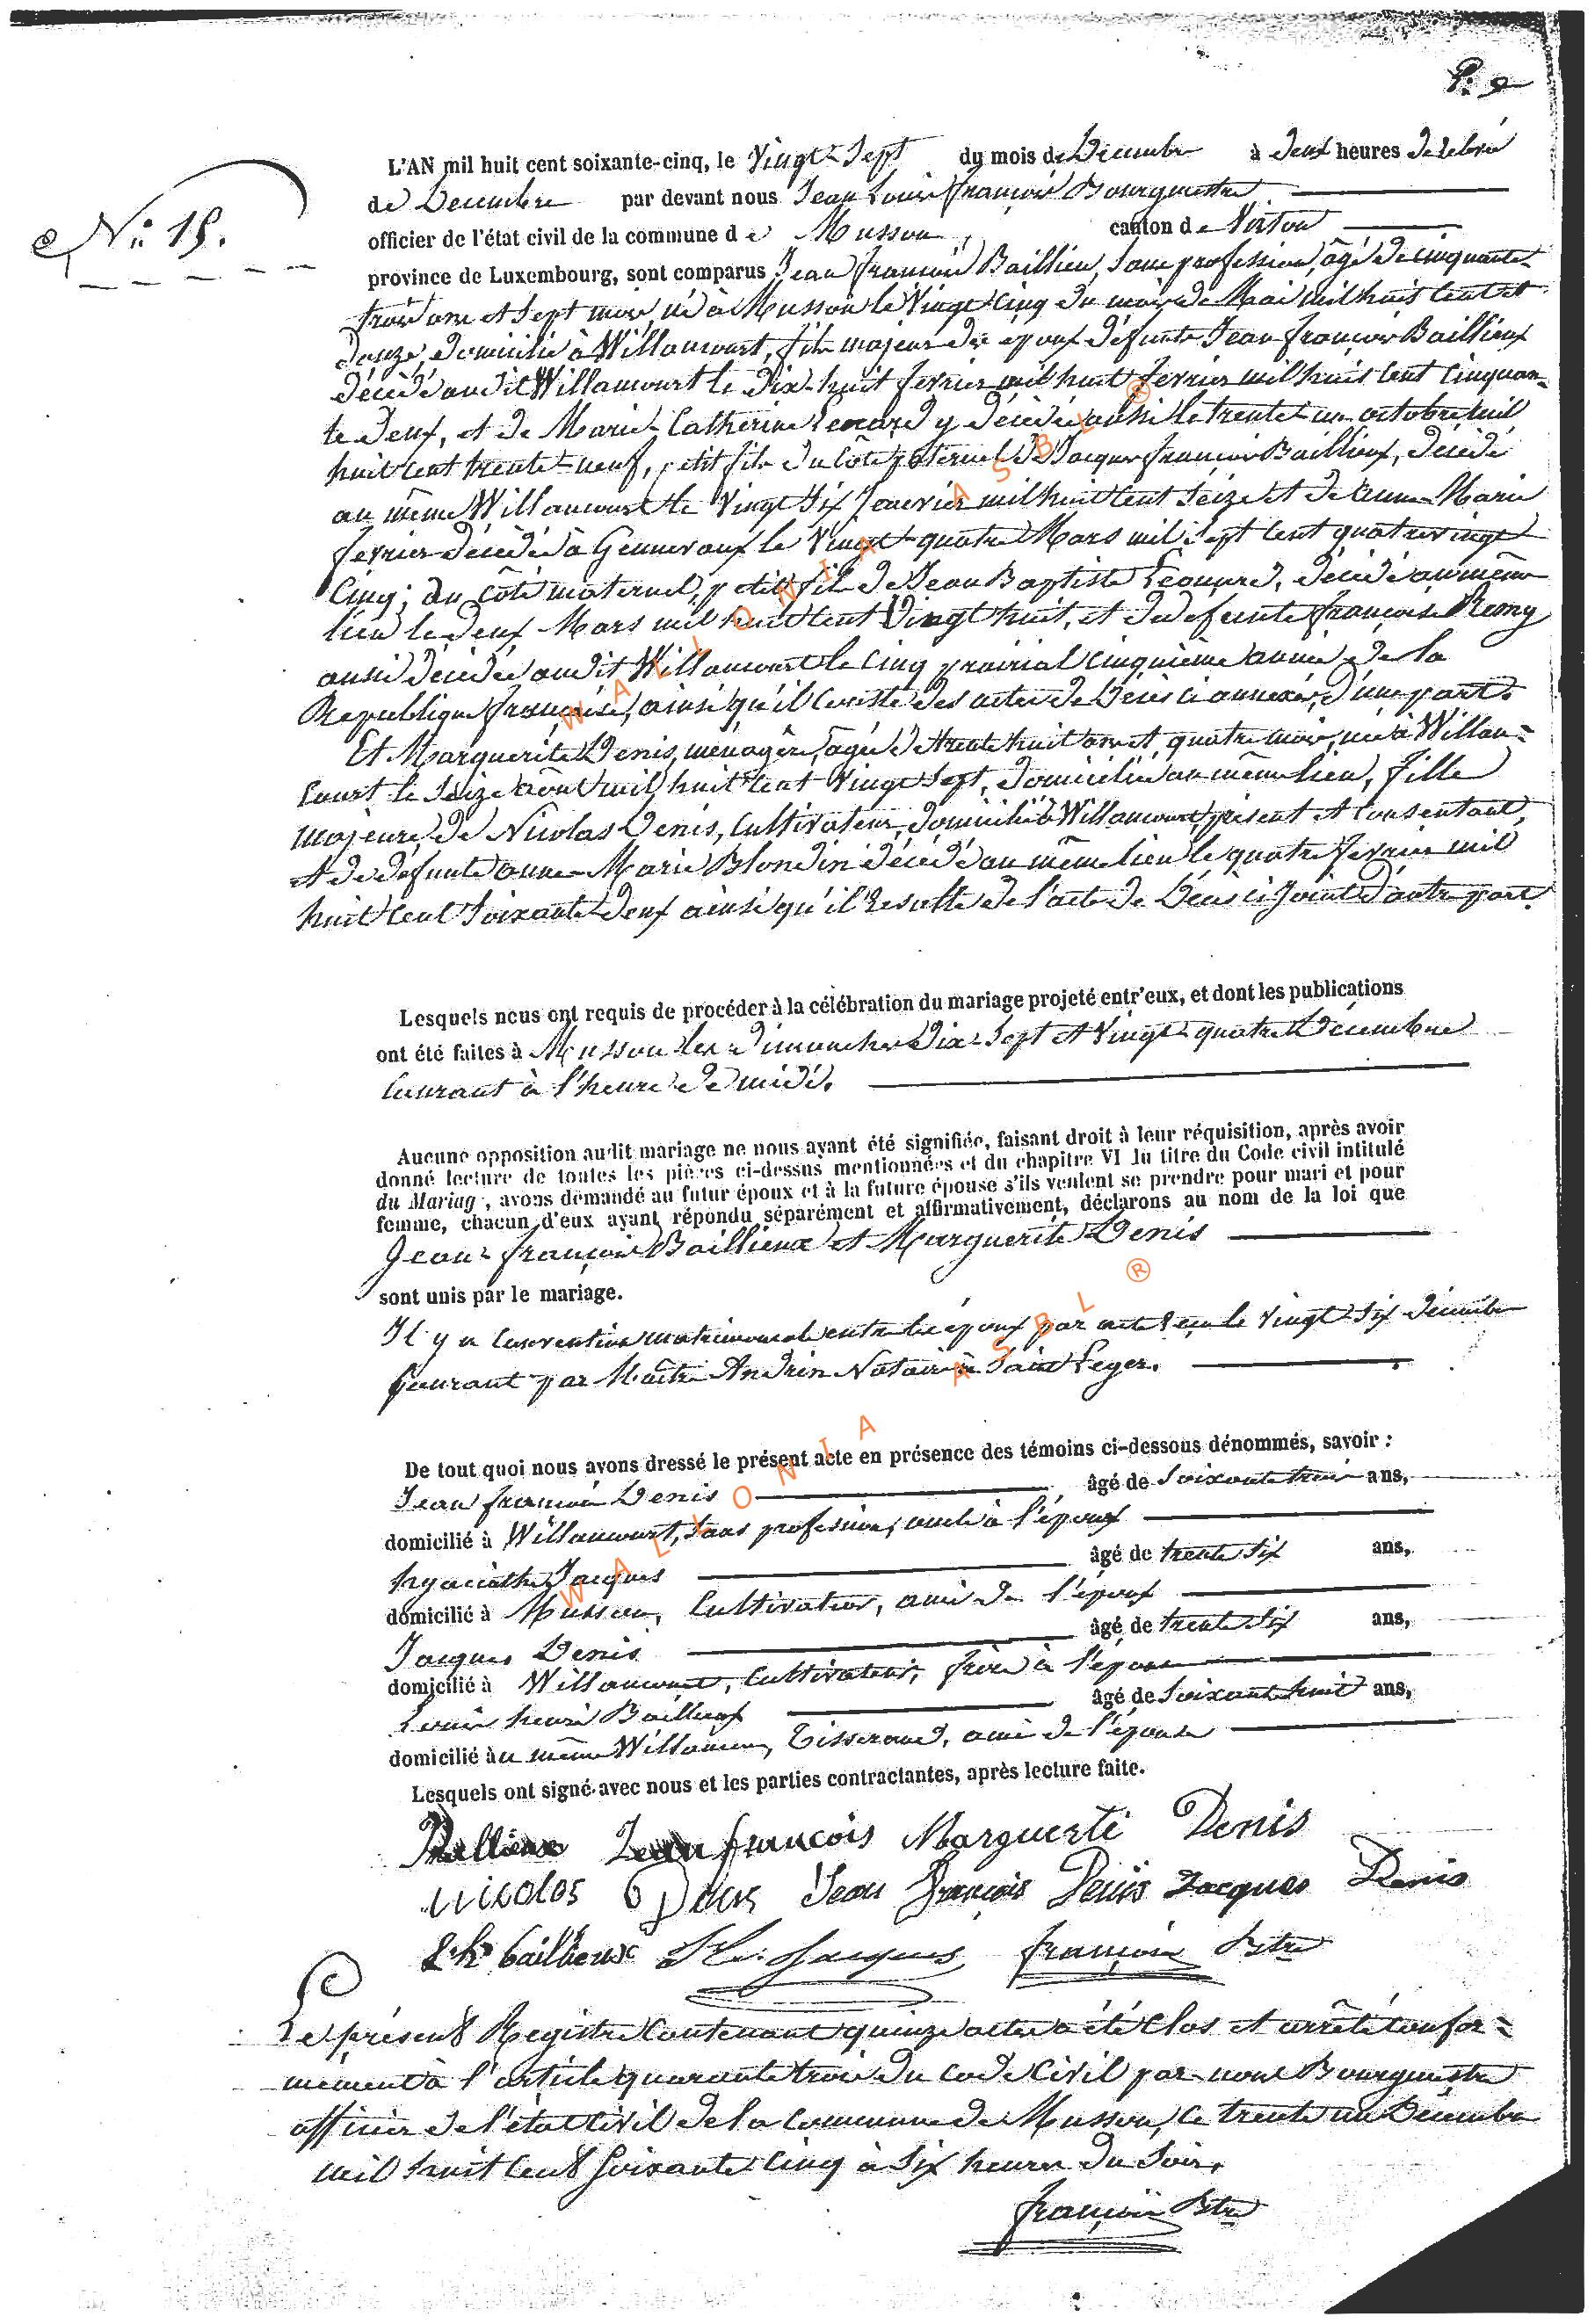 N.° 15.
L'AN mil huit cent soixante-cinq, le Vingt-Sept du mois de Décembre à deux heures
de Decembre par devant nous Jean Louis françois Bourguestre
officier de l'état civil de la commune de Musson, canton de Virton
province de Luxembourg, sont comparus Jean françois Baillieu, sans profession, âgé de cinquante-
trois ans et sept mois né à Musson le Vingt-cinq du mois de Mai mil huit cent et
douze, domicilié à Willancourt, fils majeur des époux défunts Jean-françois Baillieux
décédé audit Willancourt le dix-huit fevrier mil huit fevrier mil huit cent cinquan-
te deux, et de Marie-Catherine Leonard y décédée aussi le trente-un octobre mil
huit cent trente-neuf, petit fils du côté paternel de Jacques françois Baillieux, décédé
au même Willancourt le Vingt Six Janvier mil huit cent seize et de anne-Marie
fevrier décédée à Gennevaux le Vingt-quatre Mars mil sept cent quatrevingt
cinq; du côté maternel, petit fils de Jean Baptiste Leonard, décédé au même
lieu le deux Mars mil huit cent Vingt huit, et de defunte françoise Remy
aussi décédée audit Willancourt le cinq prairial cinquième année de la
Republique française, ainsi qu'il conste des actes de Décès ci annexés, d'une part.
Et Marguerite Denis, ménagère, âgée de trente huit ans et quatre mois, née à Willan=
court le Seize août mil huit cent Vingt Sept, domiciliée au même lieu, fille
majeure de Nicolas Denis, cultivateur, domicilié à Willancourt, présent et consentant,
et de défunte anne-Marie Blondin décédé au même lieu le quatre fevrier mil
huit cent soixante-deux ainsi qu'il resulte de l'acte de Décès ci joint d'autre part
Lesquels nous ont requis de procéder à la célébration du mariage projeté entr'eux, et dont les publications
ont été faites à Musson les dimanches dix-Sept et Vingt-quatre Décembre
courant à l'heure de midi.
Aucune opposition audit mariage ne nous ayant été signifiée, faisant droit à leur réquisition, après avoir
donné lecture de toutes les pièces ci-dessus mentionnées et du chapitre VI du titre du Code civil intitulé
du Mariag, avons demandé au futur époux et à la future épouse s'ils veulent se prendre pour mari et pour
femme, chacun d'eux ayant répondu séparément et affirmativement, déclarons au nom de la loi que
Jean-françois Baillieux et Marguerite Denis
sont unis par le mariage.
Il y a convention matrimoniale entre les époux par acte reçu le Vingt-Six décembre
courant par Maître Andrin Notaire à Saint Leger.
De tout quoi nous avons dressé le présent acte en présence des témoins ci-dessous dénommés, savoir :
Jean françois Denis âgé de soixante trois ans,
domicilié à Willancourt, sans profession, oncle à l'époux
hyacinthe Jacques âgé de trente Six ans,
domicilié à Musson, Cultivateur, ami de l'époux
Jacques Denis âgé de trente Six ans,
domicilié à Willancourt, Cultivateur, frère à l'épouse
Louis henri Baillieux âgé de Soixante huit ans,
domicilié au même Willancourt, Tisserand, ami de l'épouse
Lesquels ont signé avec nous et les parties contractantes, après lecture faite.
Baillieux Jean françois Marguerite Denis
Nicolas Denis Jean François Denis Jacques Denis
L h bailleux H. Jacques françois Btre
Le présent Registre contenant quinze actes a été clos et arrêté confor=
mément à l'article quarante trois du code Civil par nous Bourguestre
officier de l'état civil de la commune de Musson, le trente un Décembre
mil huit cent soixante cinq à six heures du Soir.
françois Btre
WALLONIA ASBL ®
WALLONIA ASBL ®